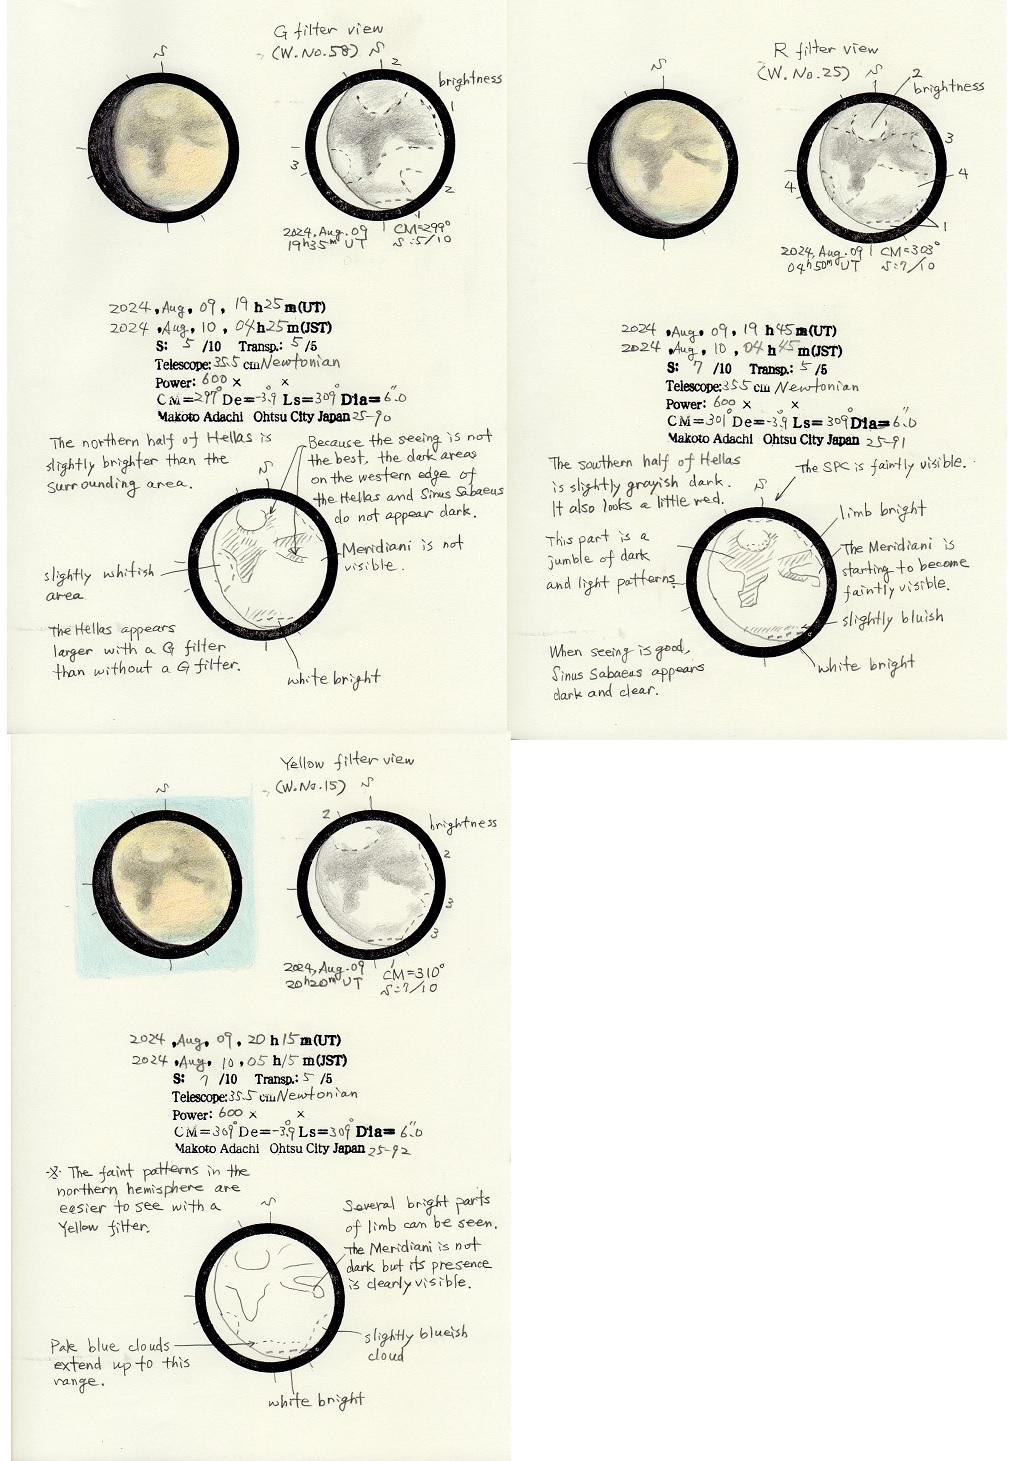 G filter view
(W.No.58)
S
S
2
brightness
1
3
2
2024, Aug. 09
19h35m UT
CM=299°
S:5/10
2024, Aug, 09, 19 h25m(UT)
2024, Aug, 10, 04h25m(JST)
S: 5 /10 Transp.: 5 /5
Telescope: 35.5 cm Newtonian
Power: 600 × ×
CM=297° De=-3.9° Ls=309° Dia= 6".0
Makoto Adachi Ohtsu City Japan 25-90
The northern half of Hellas is
slightly brighter than the
surrounding area.
Because the seeing is not
the best, the dark areas
on the western edge of
the Hellas and Sinus Sabaeus
do not appear dark.
S
Meridiani is not
visible.
slightly whitish
area
The Hellas appears
larger with a G filter
than without a G filter.
white bright
R filter view
(W.No.25)
S
S
2
brightness
3
4
4
1
2024, Aug. 09
04h50m UT
CM=303°
S:7/10
2024, Aug, 09, 19 h45m(UT)
2024, Aug, 10, 04 h45m(JST)
S: 7 /10 Transp.: 5 /5
Telescope: 35.5 cm Newtonian
Power: 600 × ×
CM=301° De=-3.9° Ls=309° Dia= 6".0
Makoto Adachi Ohtsu City Japan 25-91
The southern half of Hellas
is slightly grayish dark.
It also looks a little red.
The SPC is faintly visible.
S
limb bright
This part is a
jumble of dark
and light patterns.
The Meridiani is
starting to become
faintly visible.
slightly bluish
When seeing is good,
Sinus Sabaeus appears
dark and clear.
white bright
Yellow filter view
(W.No.15)
S
S
2
brightness
2
3
3
2024, Aug. 09
20h20m UT
CM=310°
S:7/10
2024, Aug, 09, 20 h15m(UT)
2024, Aug, 10, 05 h15m(JST)
S: 7 /10 Transp.: 5 /5
Telescope: 35.5 cm Newtonian
Power: 600 × ×
CM=309° De=-3.9° Ls=309° Dia= 6".0
Makoto Adachi Ohtsu City Japan 25-92
※ The faint patterns in the
northern hemisphere are
easier to see with a
Yellow filter.
S
Several bright parts
of limb can be seen.
The Meridiani is not
dark but its presence
is clearly visible.
Pale blue clouds
extend up to this
range.
slightly blueish
cloud
white bright